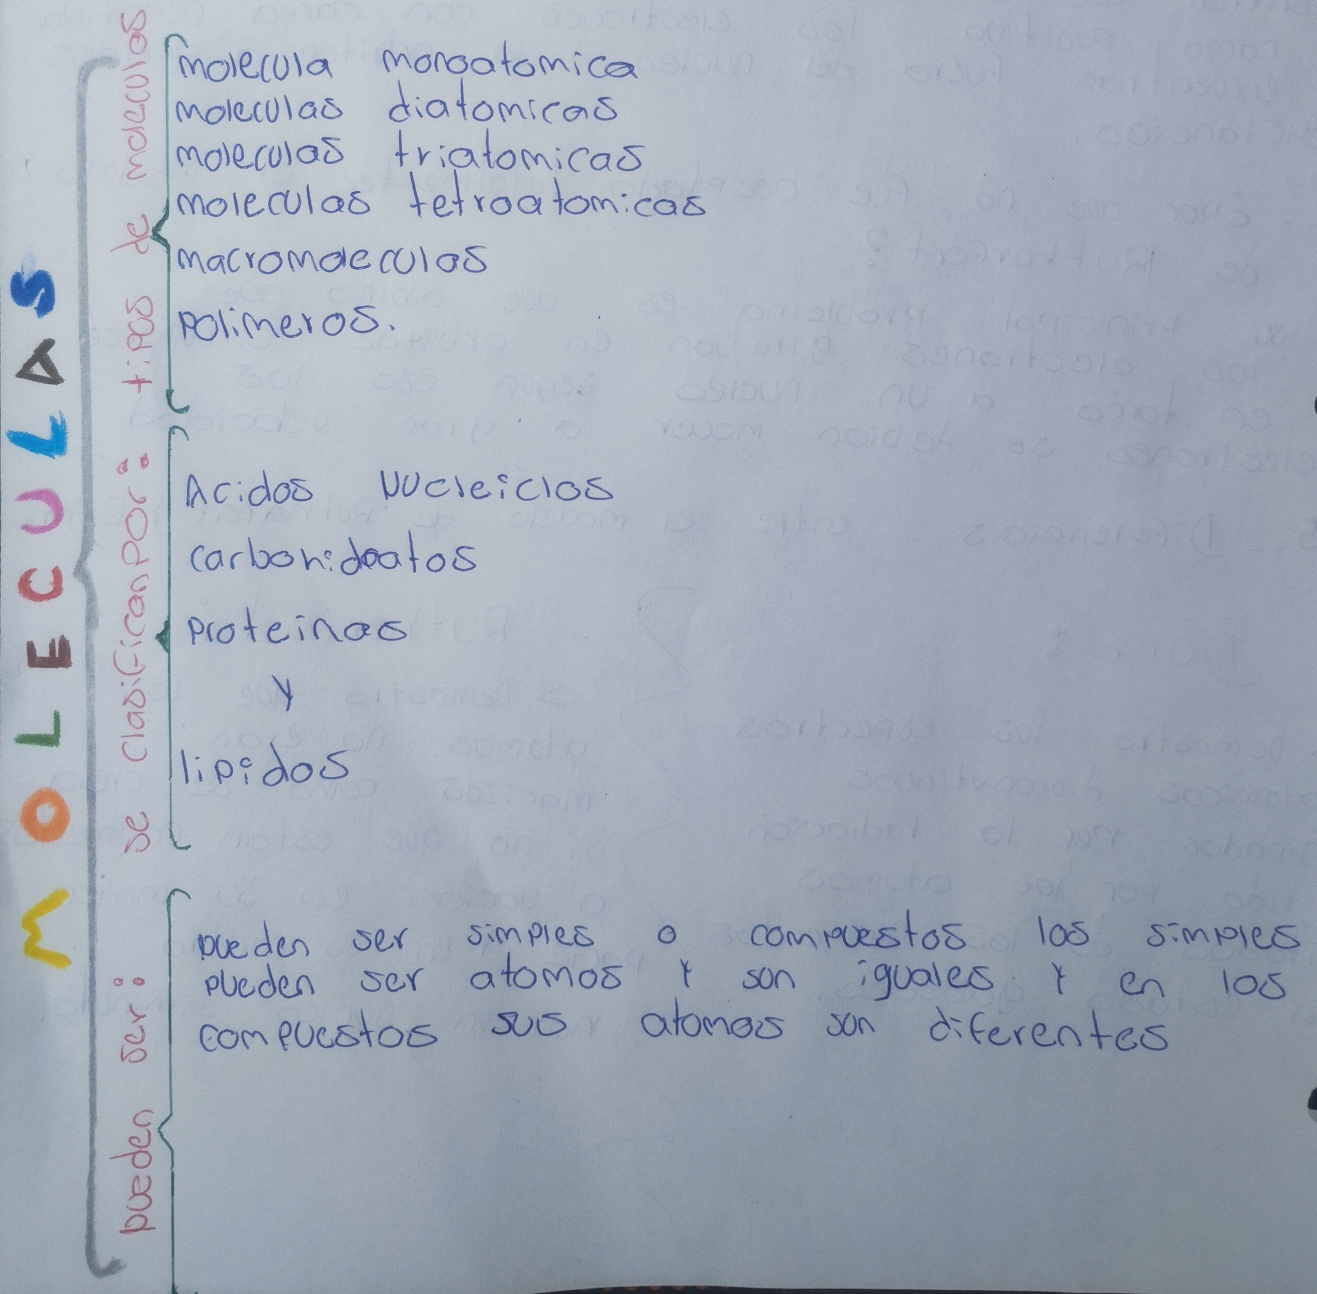 MOLECULAS
tipos de moleculas
molecula monoatomica
moleculas diatomicas
moleculas triatomicas
moleculas tetroatomicas
macromoleculas
polimeros.
se clasifican por:
Acidos Nucleiclos
carbohidratos
proteinas
y
lipidos
pueden ser:
pueden ser simples o compuestos los simples
pueden ser atomos y son iguales y en los
compuestos sus atomos son diferentes